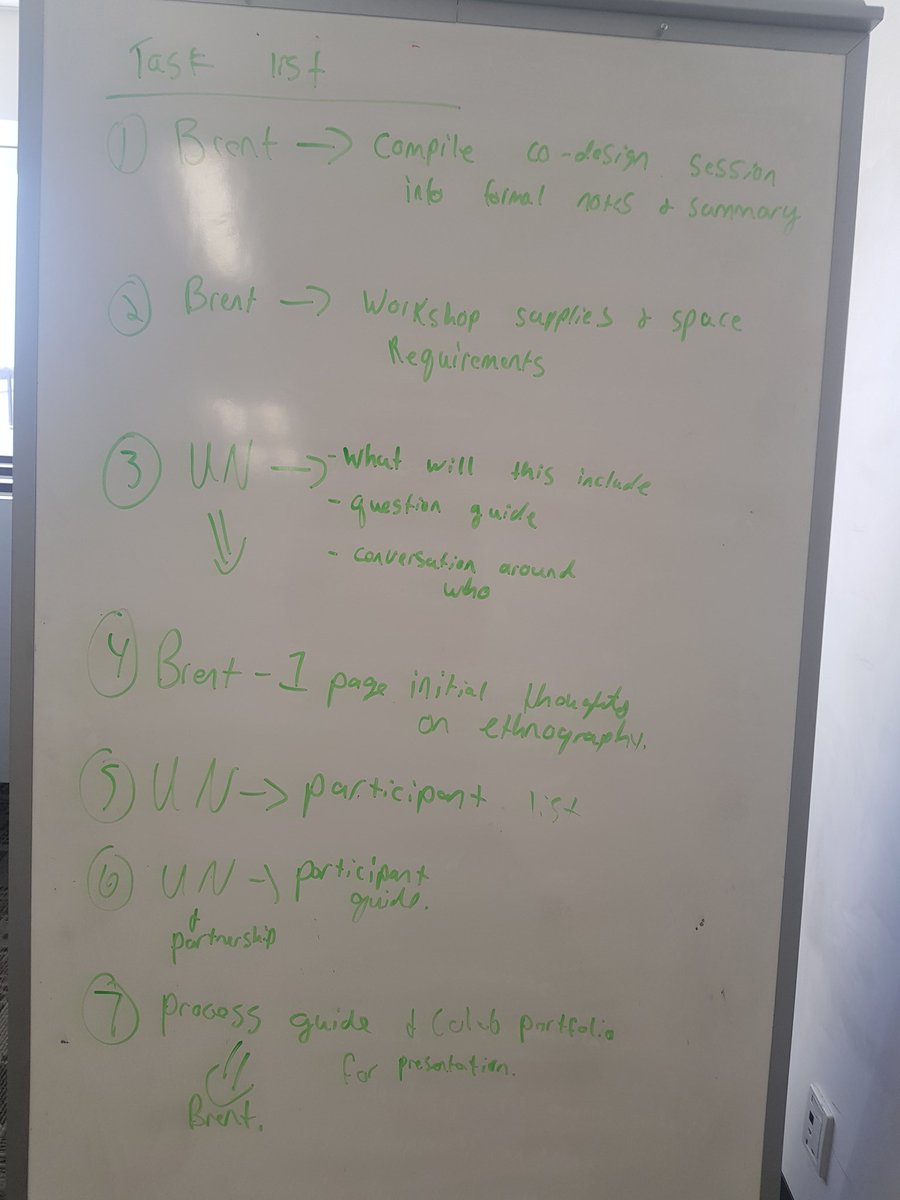 Task list
① Brent → Compile co-design session
into formal notes & summary
② Brent → Workshop supplies & space
Requirements
③ UN → - What will this include
- question guide
- conversation around
who
④ Brent - 1 page initial thoughts
on ethnography.
⑤ UN → participant list
⑥ UN → participant
guide.
& partnership
⑦ process guide & Colab portfolio
for presentation.
Brent.